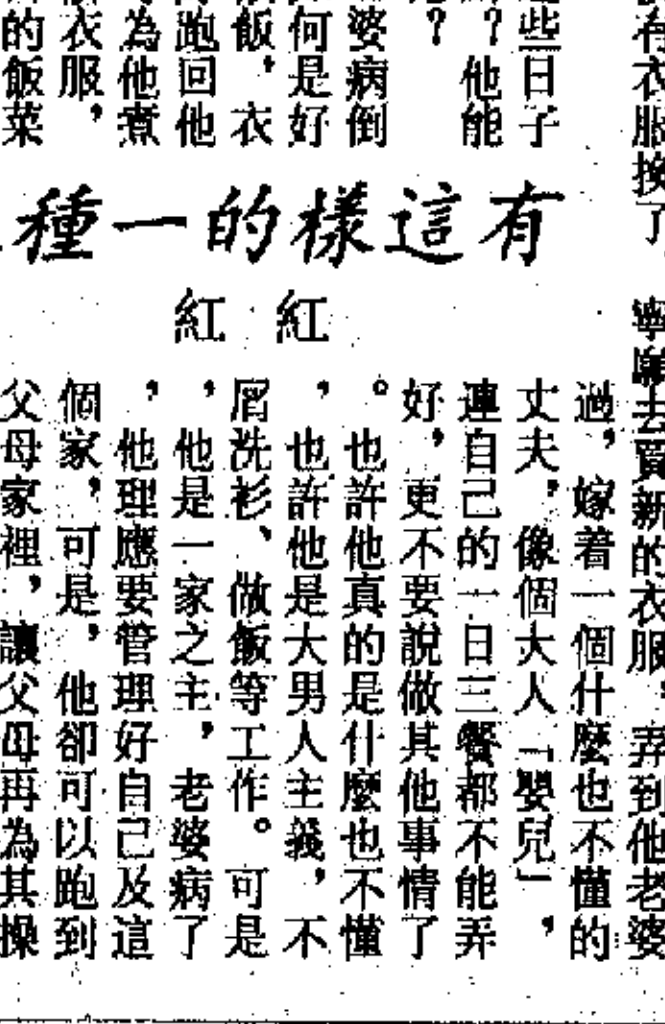 有衣服換了　寧願去買新的衣服，弄到他老婆
些日子
？他能
？
婆病倒
何是好
飯，衣
跑回他
為他煮
衣服，
的飯菜
有這樣的一種
紅紅
過，嫁着一個什麼也不懂的
丈夫，像個大人「嬰兒」，
連自己的一日三餐都不能弄
好，更不要說做其他事情了
。也許他真的是什麼也不懂
，也許他是大男人主義，不
屑洗衫、做飯等工作。可是
，他是一家之主，老婆病了
，他理應要管理好自己及這
個家，可是，他卻可以跑到
父母家裡，讓父母再為其操